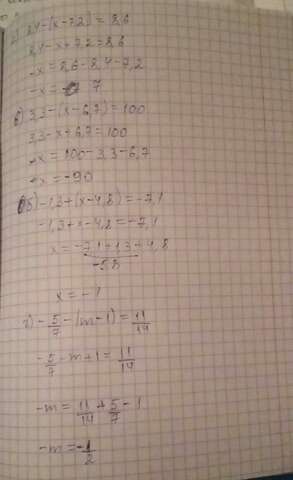 8,4-(x-7,2)=8,6
8,4-x+7,2=8,6
-x=8,6-8,4-7,2
-x=- 7
в) 3,3-(x-6,7)=100
3,3-x+6,7=100
-x=100-3,3-6,7
-x=-90
б) -1,3+(x-4,8)=-7,1
-1,3+x-4,8=-7,1
x=-7,1+1,3+4,8
-5,8
x=-1
г) -5/7-(m-1)=11/14
-5/7-m+1=11/14
-m=11/14+5/7-1
-m=-1/2